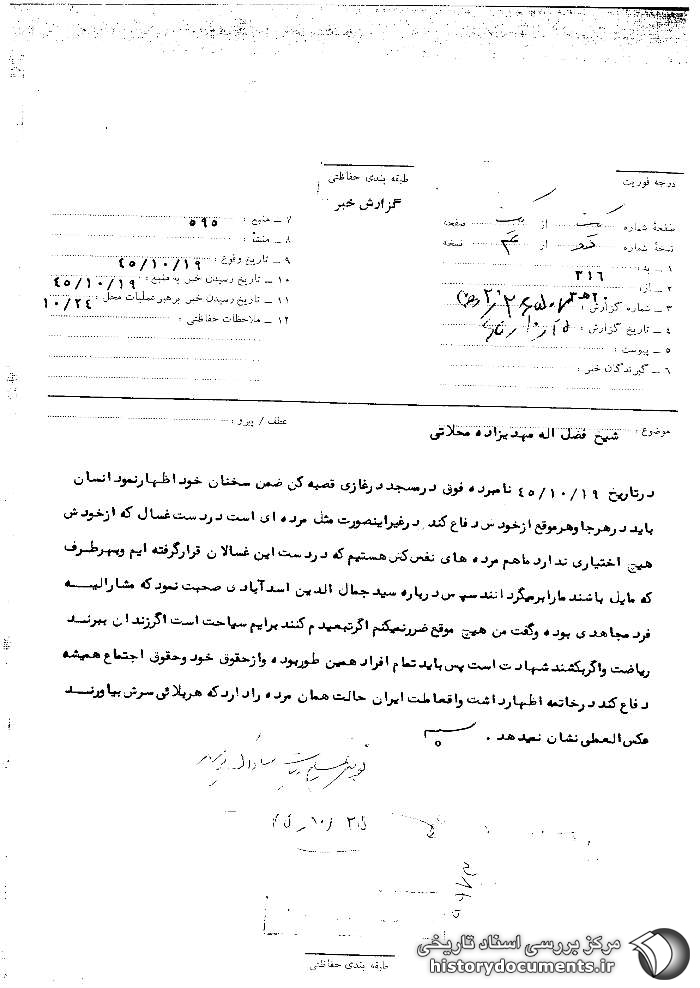 درجه فوریت
طبقه بندی حفاظتی
گزارش خبر
صفحهٔ شماره یک از یک صفحه
نسخهٔ شماره دو از ۴ نسخه
۱ ـ به : ۳۱۶
۲ ـ از :
۳ ـ شماره گزارش :
۴ ـ تاریخ گزارش :
۵ ـ پیوست :
۶ ـ گیرندگان خبر :
۷ ـ منبع : ۵۹۵
۸ ـ منشاء :
۹ ـ تاریخ وقوع : ۴۵/۱۰/۱۹
۱۰ ـ تاریخ رسیدن خبر به منبع : ۴۵/۱۰/۱۹
۱۱ ـ تاریخ رسیدن خبر برهبر عملیات محل : ۱۰/۲۴
۱۲ ـ ملاحظات حفاظتی :
موضوع : شیخ فضل اله مهدیزاده محلاتی
عطف / پیرو :
درتاریخ ۴۵/۱۰/۱۹ نامبرده فوق درمسجد درغازی قصبه کن ضمن سخنان خود اظهارنمود انسان
باید درهرجا وهرموقع ازخودش دفاع کند درغیراینصورت مثل مرده ای است دردست غسال که ازخودش
هیچ اختیاری ندارد ماهم مرده های نفس کش هستیم که دردست این غسالان قرارگرفته ایم وبهرطرف
که مایل باشند مارابرمیگردانند سپس درباره سید جمال الدین اسدآبادی صحبت نمود که مشارالیه
فرد مجاهدی بوده وگفت من هیچ موقع ضررنمیکنم اگرتبعیدم کنند برایم سیاحت است اگرزندان ببرند
ریاضت واگربکشند شهادت است پس باید تمام افراد همین طوربوده وازحقوق خود وحقوق اجتماع همیشه
دفاع کند درخاتمه اظهارداشت واقعاملت ایران حالت همان مرده راداردکه هربلائی سرش بیاورند
عکس العملی نشان نمیدهد .
طبقه بندی حفاظتی
مرکز بررسی اسناد تاریخی
historydocuments.ir